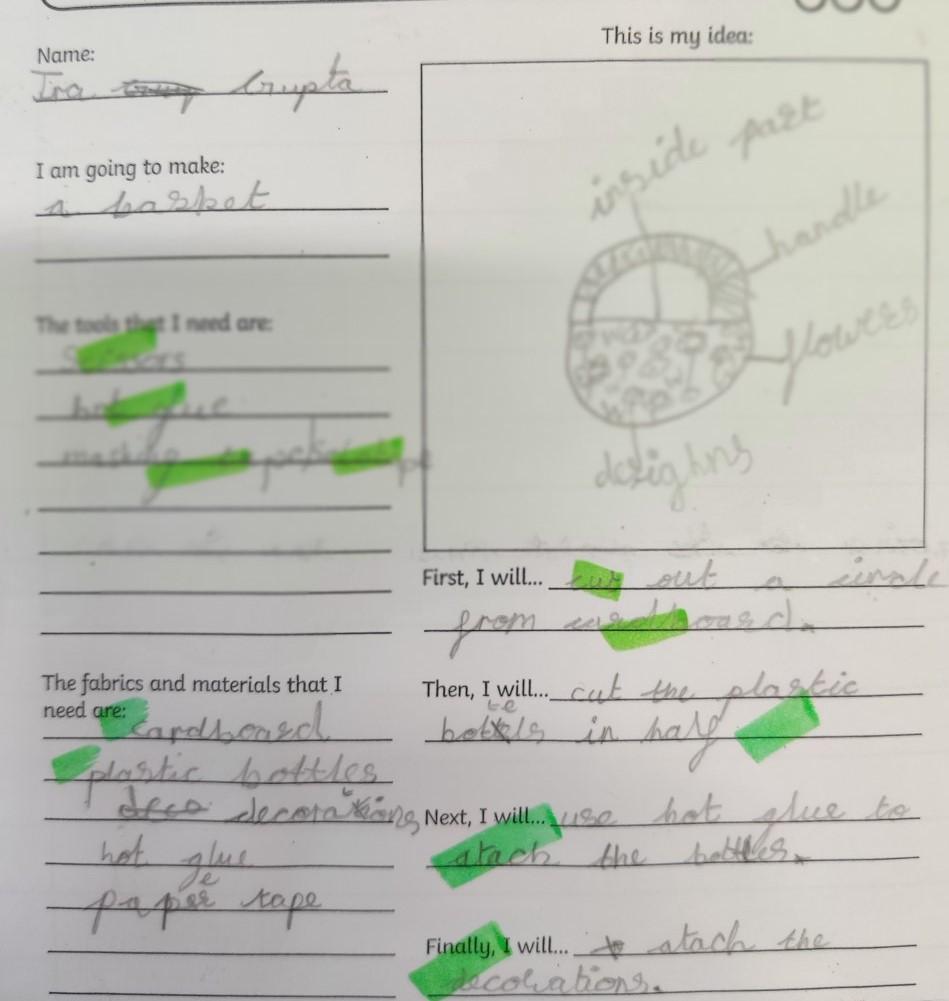 This is my idea:
Name:
Ira Grupta
I am going to make:
a basket
inside part
handle
flowers
desighns
The tools that I need are:
Scissors
hot glue
masking tape
First, I will... cut out a circle
from cardboard.
The fabrics and materials that I
need are:
cardboard
plastic bottles
deco decorations
hot glue
paper tape
Then, I will... cut the plastic
bottels in half
Next, I will... use hot glue to
atach the bottles.
Finally, I will... atach the
decorations.